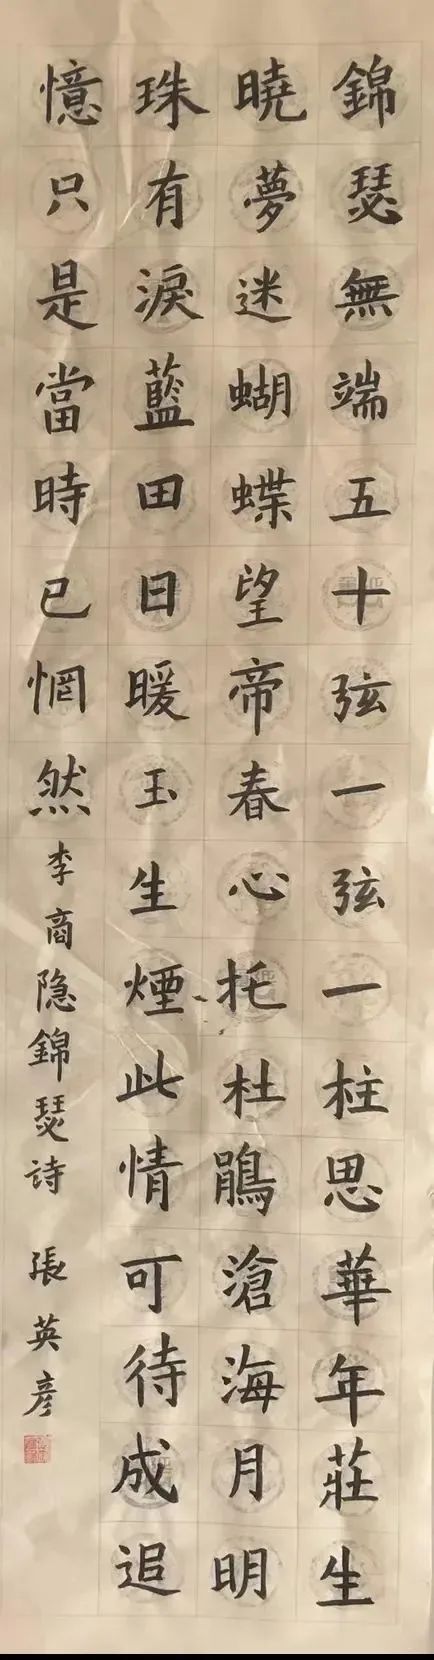 錦瑟無端五十弦一弦一柱思華年莊生
曉夢迷蝴蝶望帝春心托杜鵑滄海月明
珠有淚藍田日暖玉生煙此情可待成追
憶只是當時已惘然李商隐錦瑟诗 張英彦